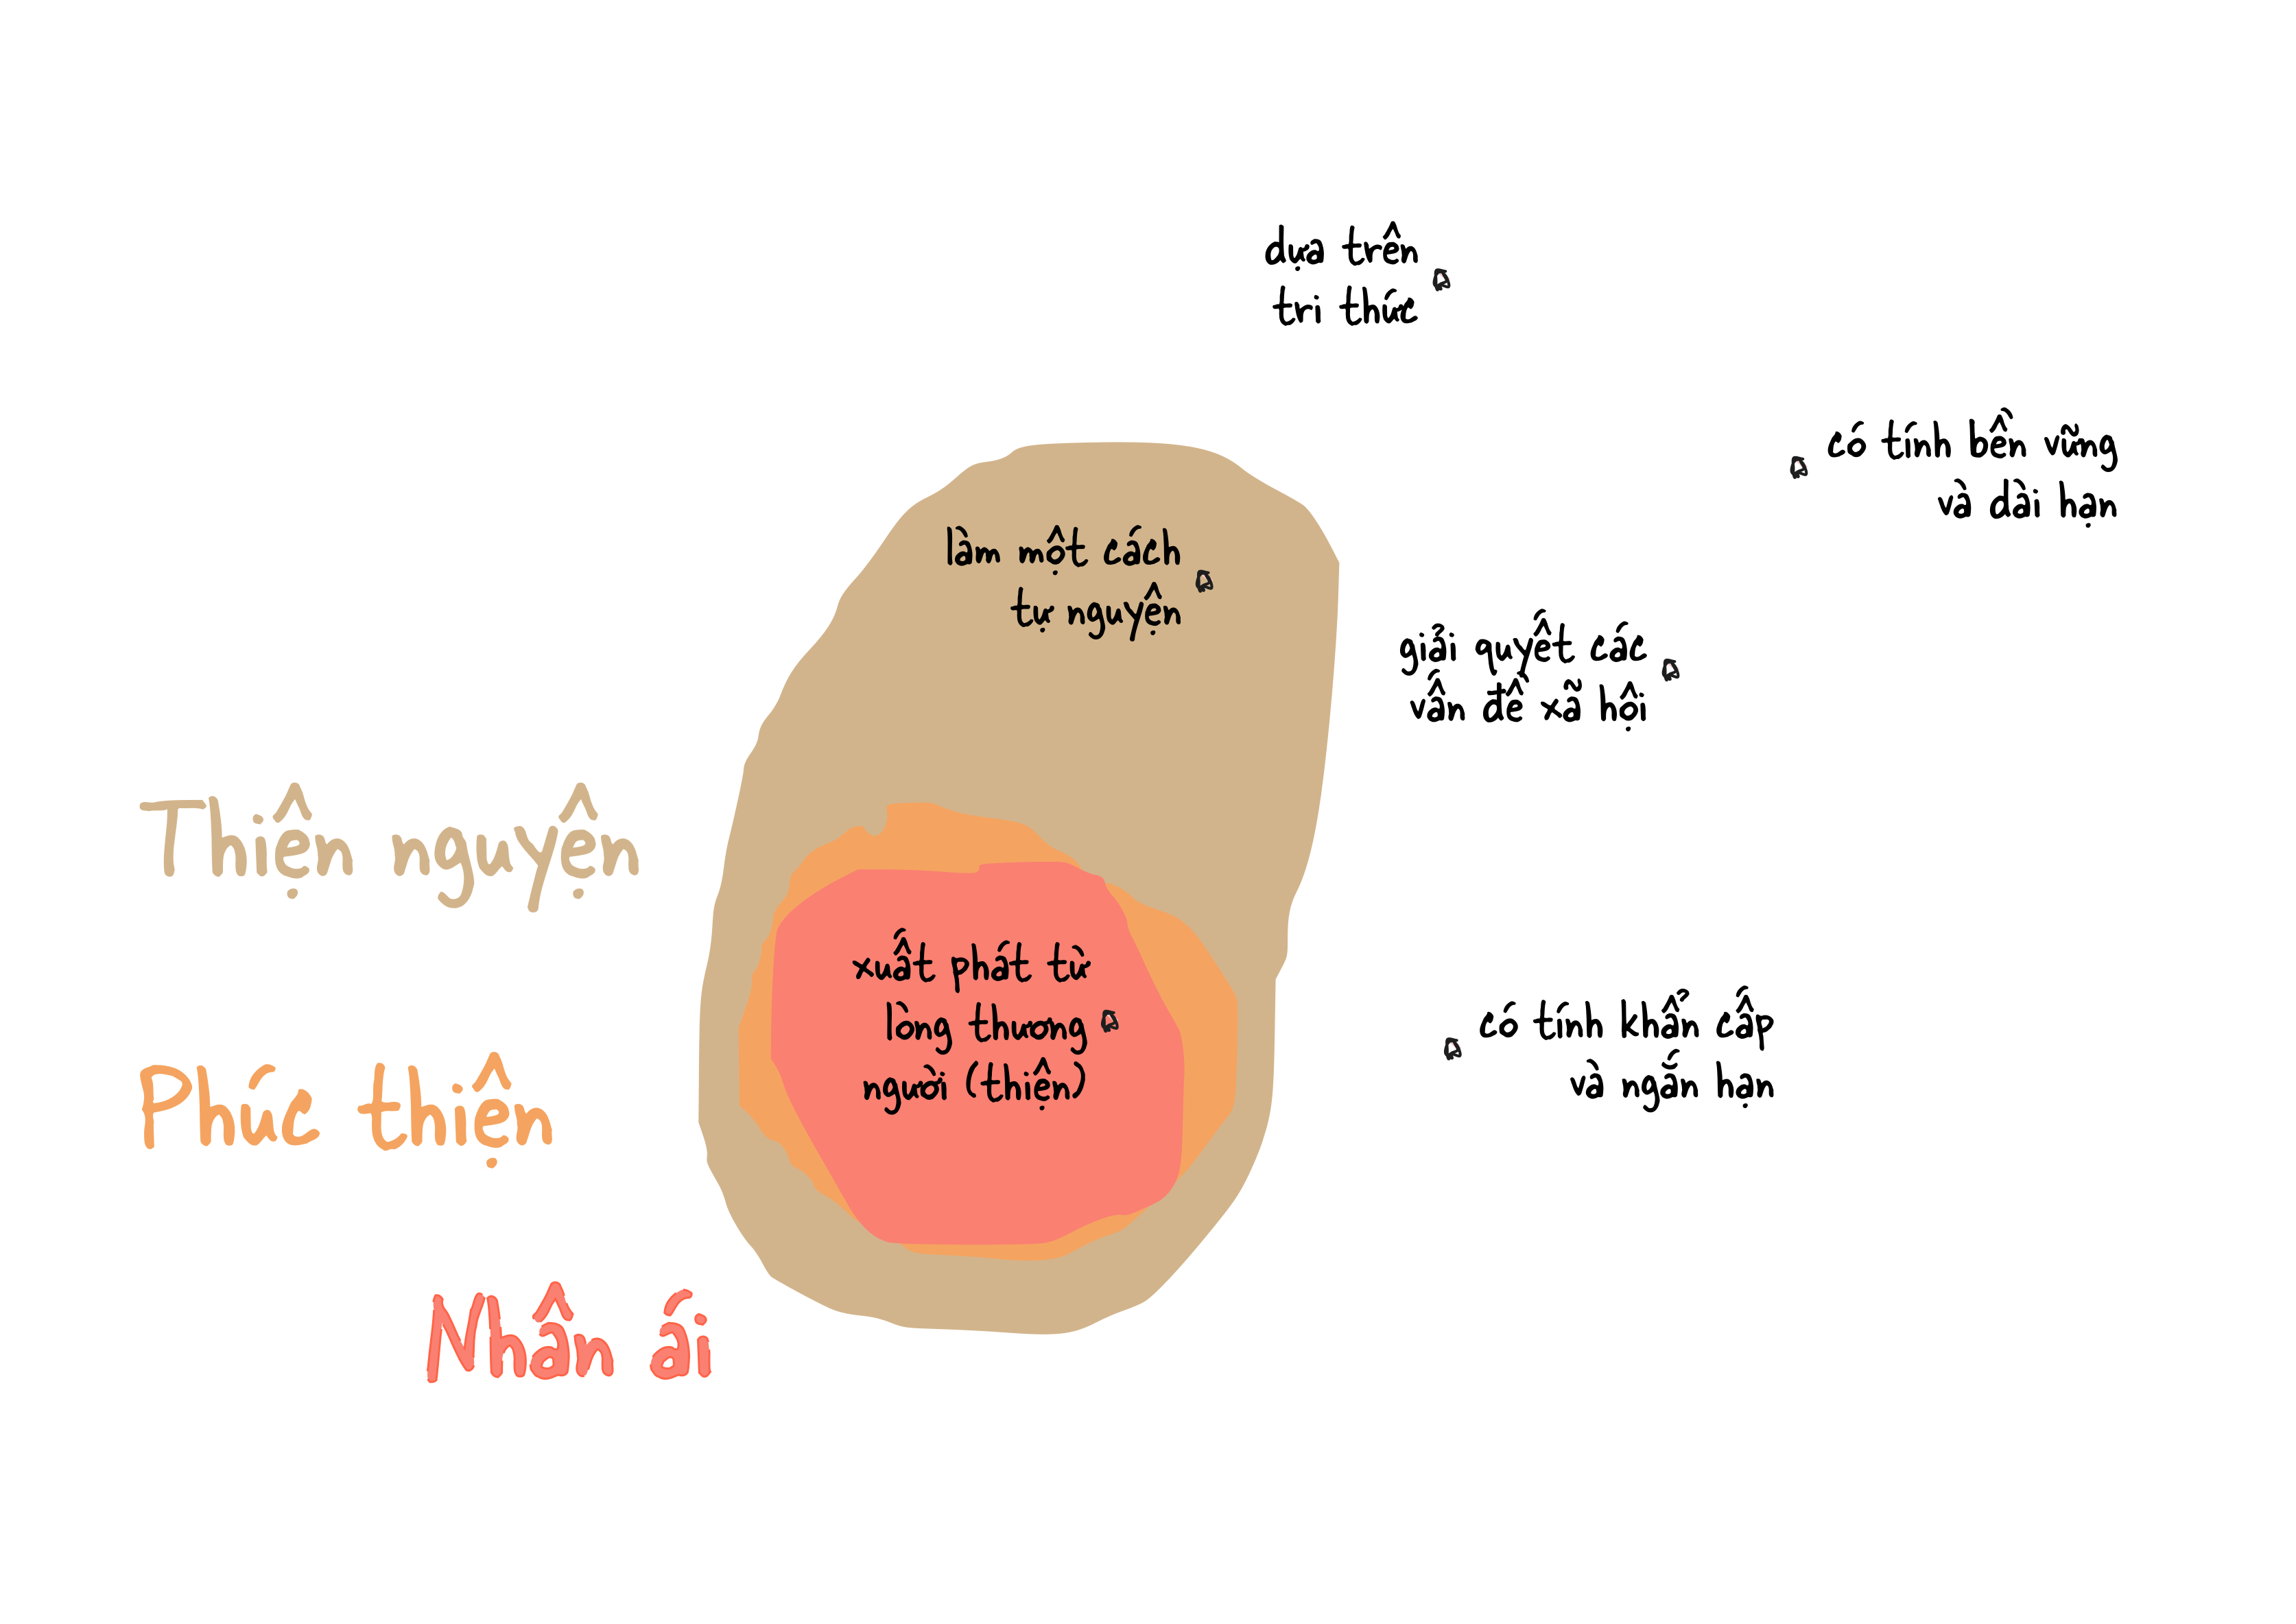 dựa trên
tri thức
có tính bền vững
và dài hạn
làm một cách
tự nguyện
giải quyết các
vấn đề xã hội
Thiện nguyện
xuất phát từ
lòng thương
người (thiện)
có tính khẩn cấp
và ngắn hạn
Phúc thiện
Nhân ái